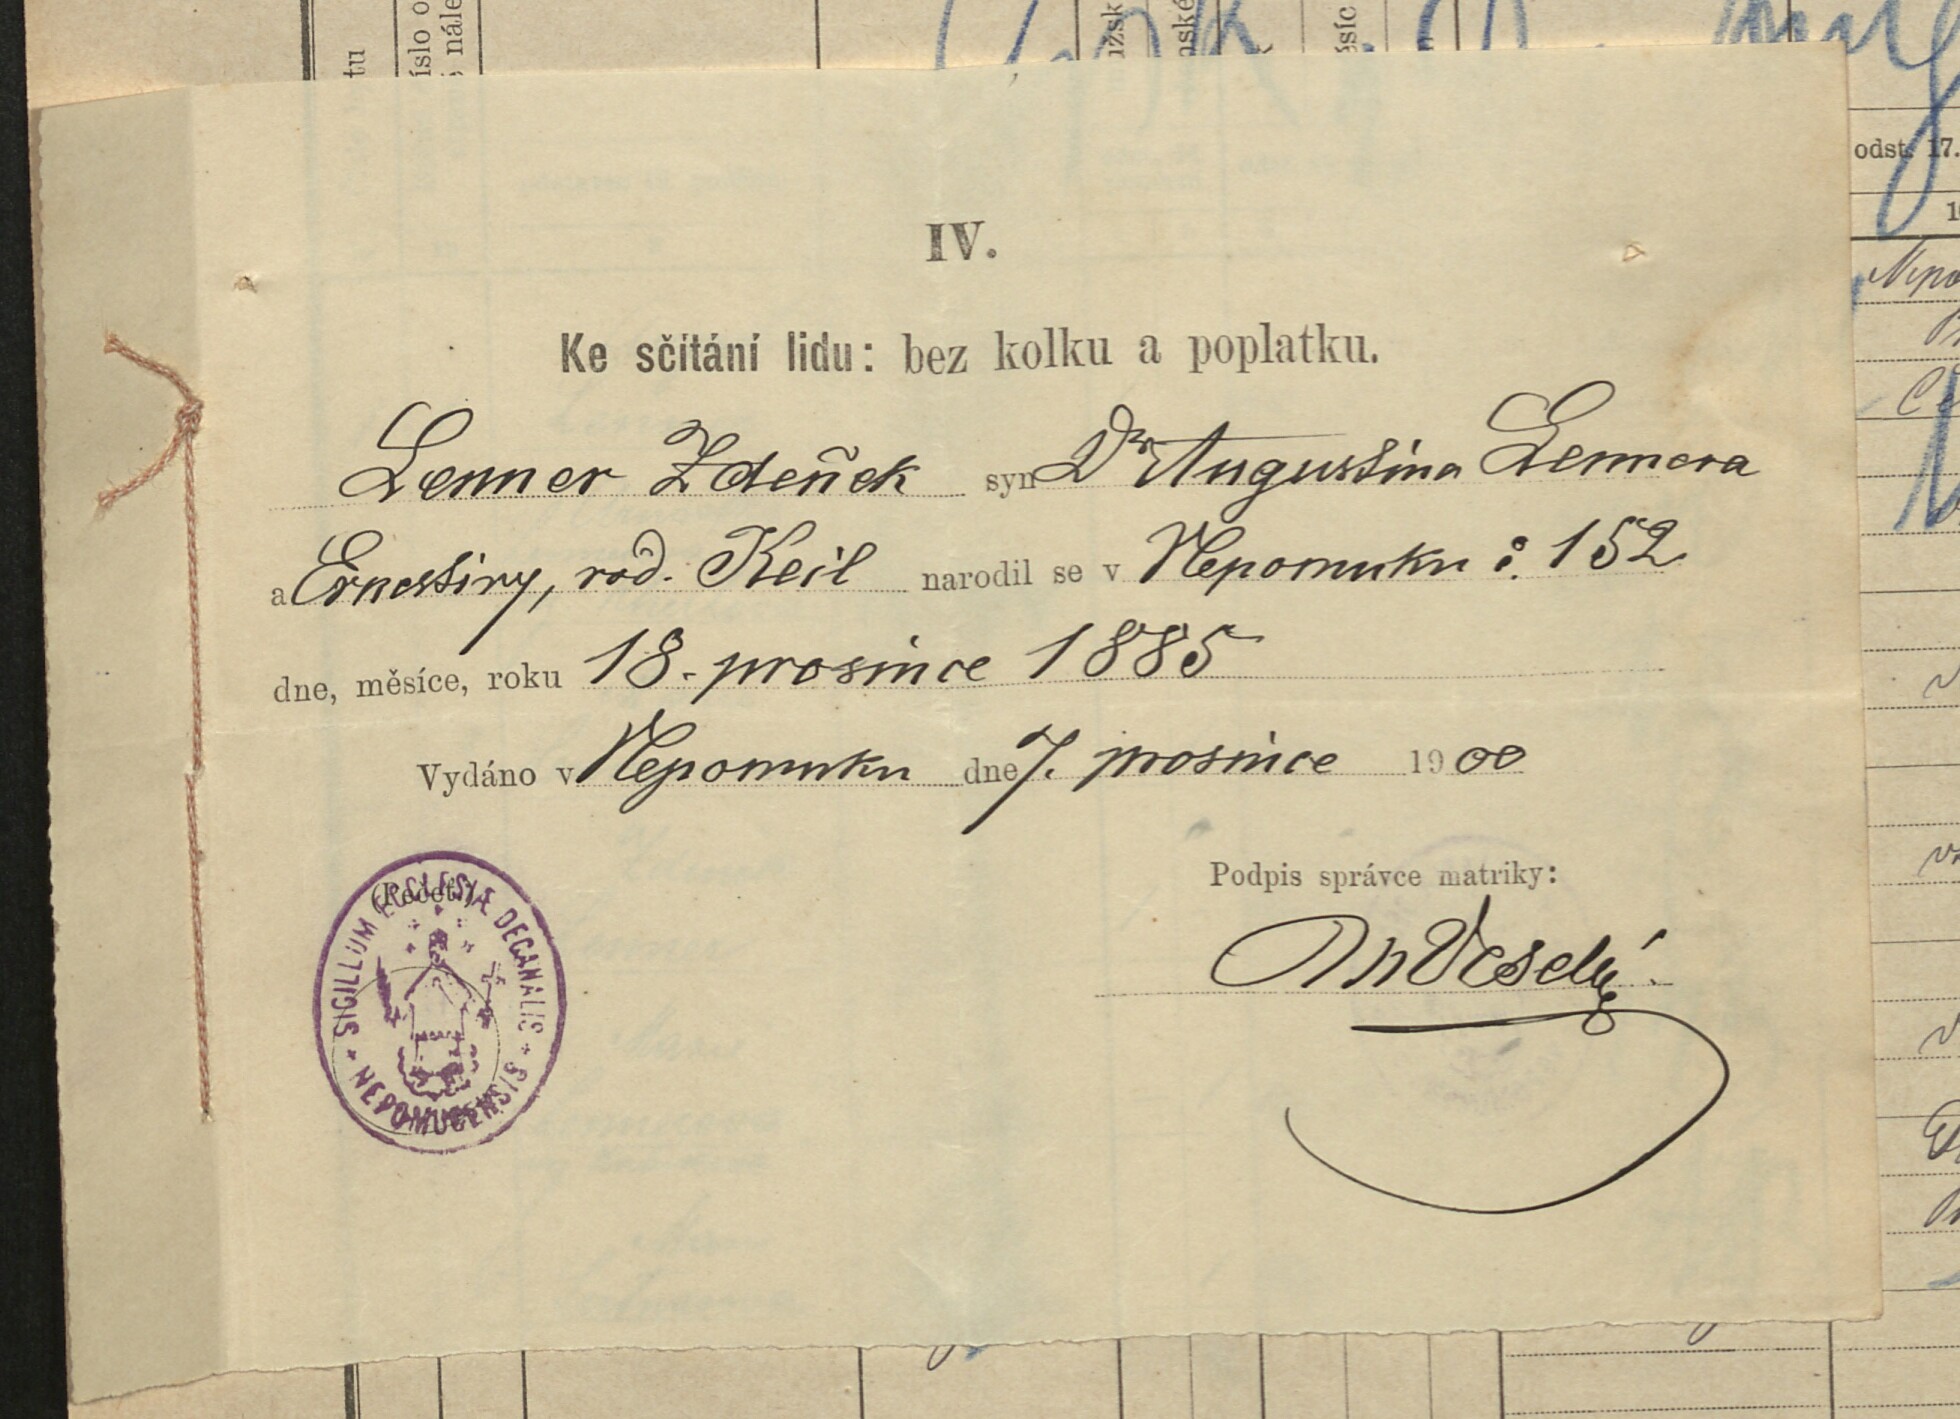 IV.
Ke sčítání lidu: bez kolku a poplatku.
Lenner Zdeňek syn Dr Augustina Lennera
a Ernestiny, rod. Keil narodil se v Nepomuku č. 152
dne, měsíce, roku 18. prosince 1885
Vydáno v Nepomuku dne 7. prosince 1900
(Pečeť.)
SIGILLUM ECCLESIÆ DECANALIS
NEPOMUCENSIS
Podpis správce matriky:
Veselý
odst. 17.